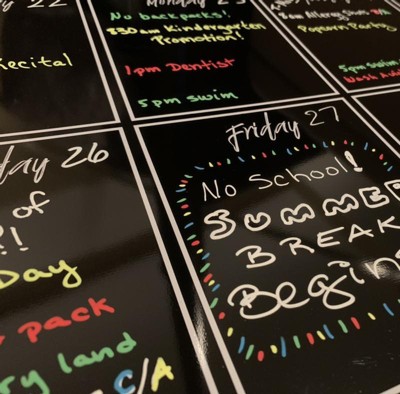 22
Recital
Monday 23
No backpacks!
830am Kindergarten
Promotion!
1pm Dentist
5pm swim
Popcorn Party
5pm swim
day 26
of
?!
Day
pack
land
C/A
Friday 27
No School!
SUMMER
BREAK
Begins